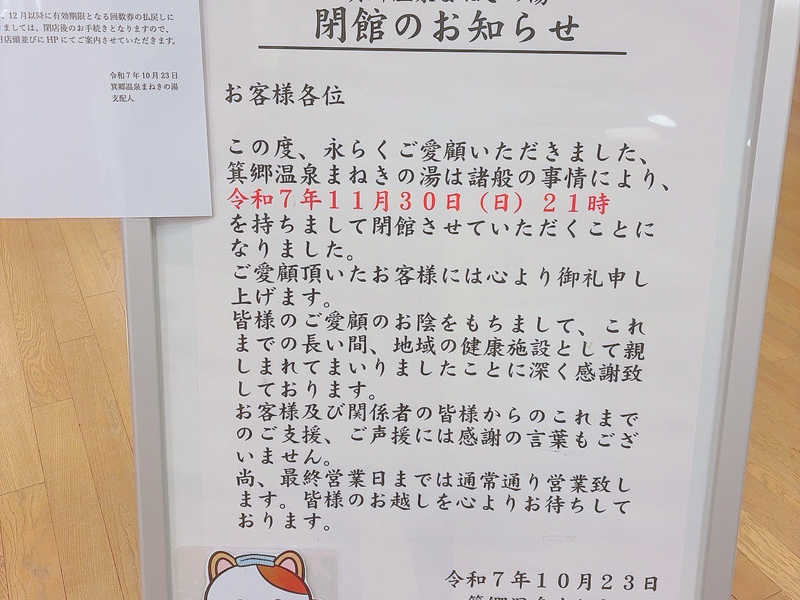 12月以降に有効期限となる回数券の払戻しに
ましては、閉店後のお手続きとなりますので、
店頭並びにHPにてご案内させていただきます。
令和7年10月23日
箕郷温泉まねきの湯
支配人
閉館のお知らせ
お客様各位
この度、永らくご愛顧いただきました、
箕郷温泉まねきの湯は諸般の事情により、
令和7年11月30日(日)21時
を持ちまして閉館させていただくことに
なりました。
ご愛顧頂いたお客様には心より御礼申し
上げます。
皆様のご愛顧のお陰をもちまして、これ
までの長い間、地域の健康施設として親
しまれてまいりましたことに深く感謝致
しております。
お客様及び関係者の皆様からのこれまで
のご支援、ご声援には感謝の言葉もござ
いません。
尚、最終営業日までは通常通り営業致し
ます。皆様のお越しを心よりお待ちして
おります。
令和7年10月23日